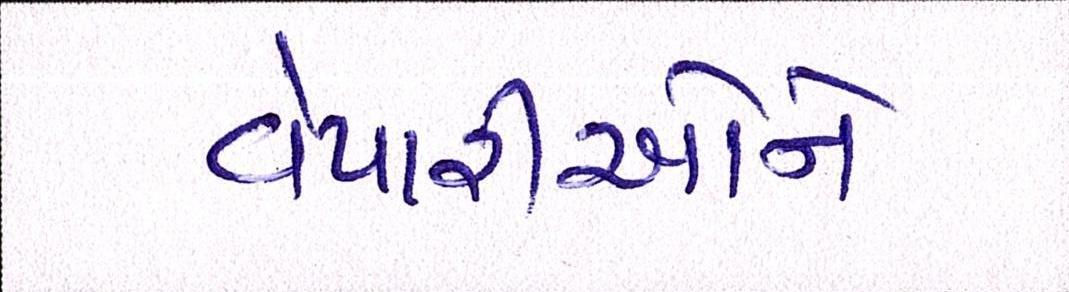 વેપારીઓને